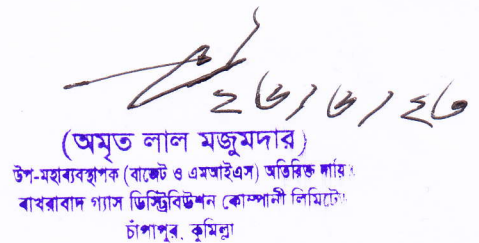 ২৬/৬/২৩
(অমৃত লাল মজুমদার)
উপ-মহাব্যবস্থাপক (বাজেট ও এমআইএস) অতিরিক্ত দায়ি
বাখরাবাদ গ্যাস ডিস্ট্রিবিউশন কোম্পানী লিমিটে
চাঁপাপুর, কুমিল্লা